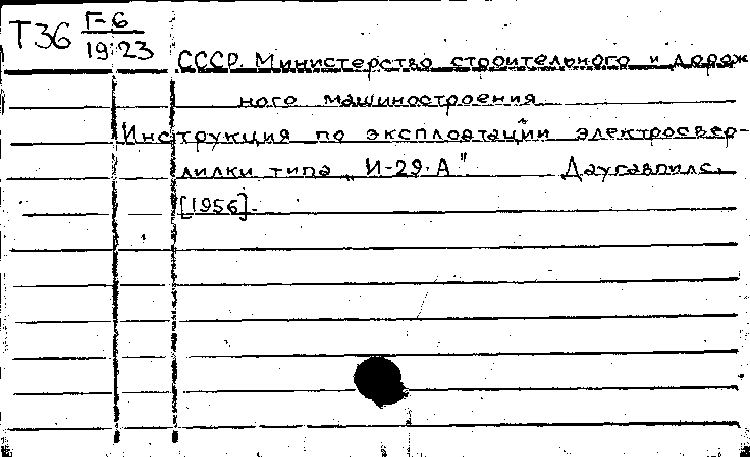 Т36 Г-6
19 23
СССР. Министерство строительного и дорож
ного машиностроения
Инструкция по эксплоатации электросвер-
лилки типа „И-29-А" Даугавпилс,
[1956].